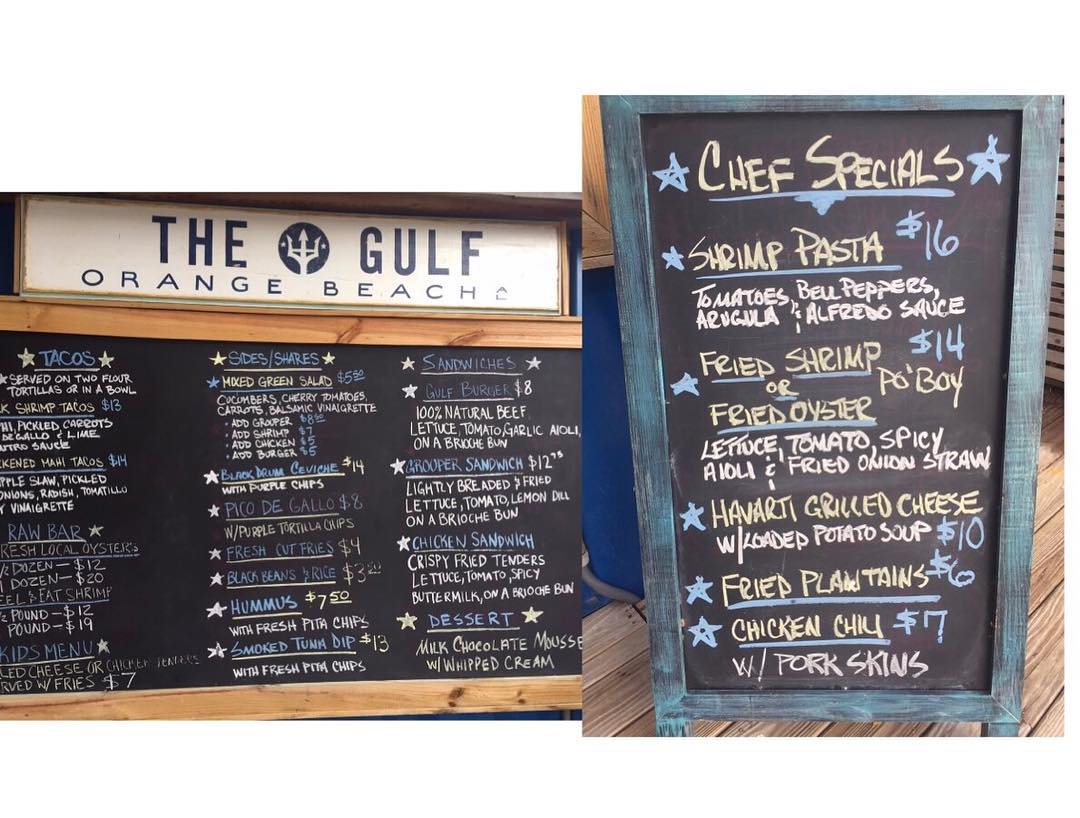 THE GULF
ORANGE BEACH
TACOS
SERVED ON TWO FLOUR
TORTILLAS OR IN A BOWL
K SHRIMP TACOS $13
HI, PICKLED CARROTS
DE GALLO & LIME
NTRO SAUCE
CKENED MAHI TACOS $14
PPLE SLAW, PICKLED
ONIONS, RADISH, TOMATILLO
VINAIGRETTE
RAW BAR
RESH LOCAL OYSTERS
½ DOZEN - $12
DOZEN - $20
EEL & EAT SHRIMP
POUND - $12
POUND - $19
KIDS MENU
LED CHEESE OR CHICKEN TENDERS
RVED W/ FRIES $7
SIDES/SHARES
MIXED GREEN SALAD $5.50
CUCUMBERS, CHERRY TOMATOES,
CARROTS, BALSAMIC VINAIGRETTE
• ADD GROUPER $8.50
• ADD SHRIMP $7
• ADD CHICKEN $5
• ADD BURGER $5
BLACK DRUM CEVICHE $14
WITH PURPLE CHIPS
PICO DE GALLO $8
W/PURPLE TORTILLA CHIPS
FRESH CUT FRIES $4
BLACK BEANS & RICE $3
HUMMUS $7.50
WITH FRESH PITA CHIPS
SMOKED TUNA DIP $13
WITH FRESH PITA CHIPS
SANDWICHES
GULF BURGER $8
100% NATURAL BEEF
LETTUCE, TOMATO, GARLIC AIOLI,
ON A BRIOCHE BUN
GROUPER SANDWICH $12.75
LIGHTLY BREADED & FRIED
LETTUCE, TOMATO, LEMON DILL
ON A BRIOCHE BUN
CHICKEN SANDWICH
CRISPY FRIED TENDERS
LETTUCE, TOMATO, SPICY
BUTTERMILK, ON A BRIOCHE BUN
DESSERT
MILK CHOCOLATE MOUSSE
W/ WHIPPED CREAM
CHEF SPECIALS
SHRIMP PASTA $16
TOMATOES, BELL PEPPERS,
ARUGULA & ALFREDO SAUCE
FRIED SHRIMP $14
OR PO'BOY
FRIED OYSTER
LETTUCE, TOMATO, SPICY
AIOLI & FRIED ONION STRAW
HAVARTI GRILLED CHEESE
W/LOADED POTATO SOUP $10
FRIED PLANTAINS $6
CHICKEN CHILI $7
W/ PORK SKINS